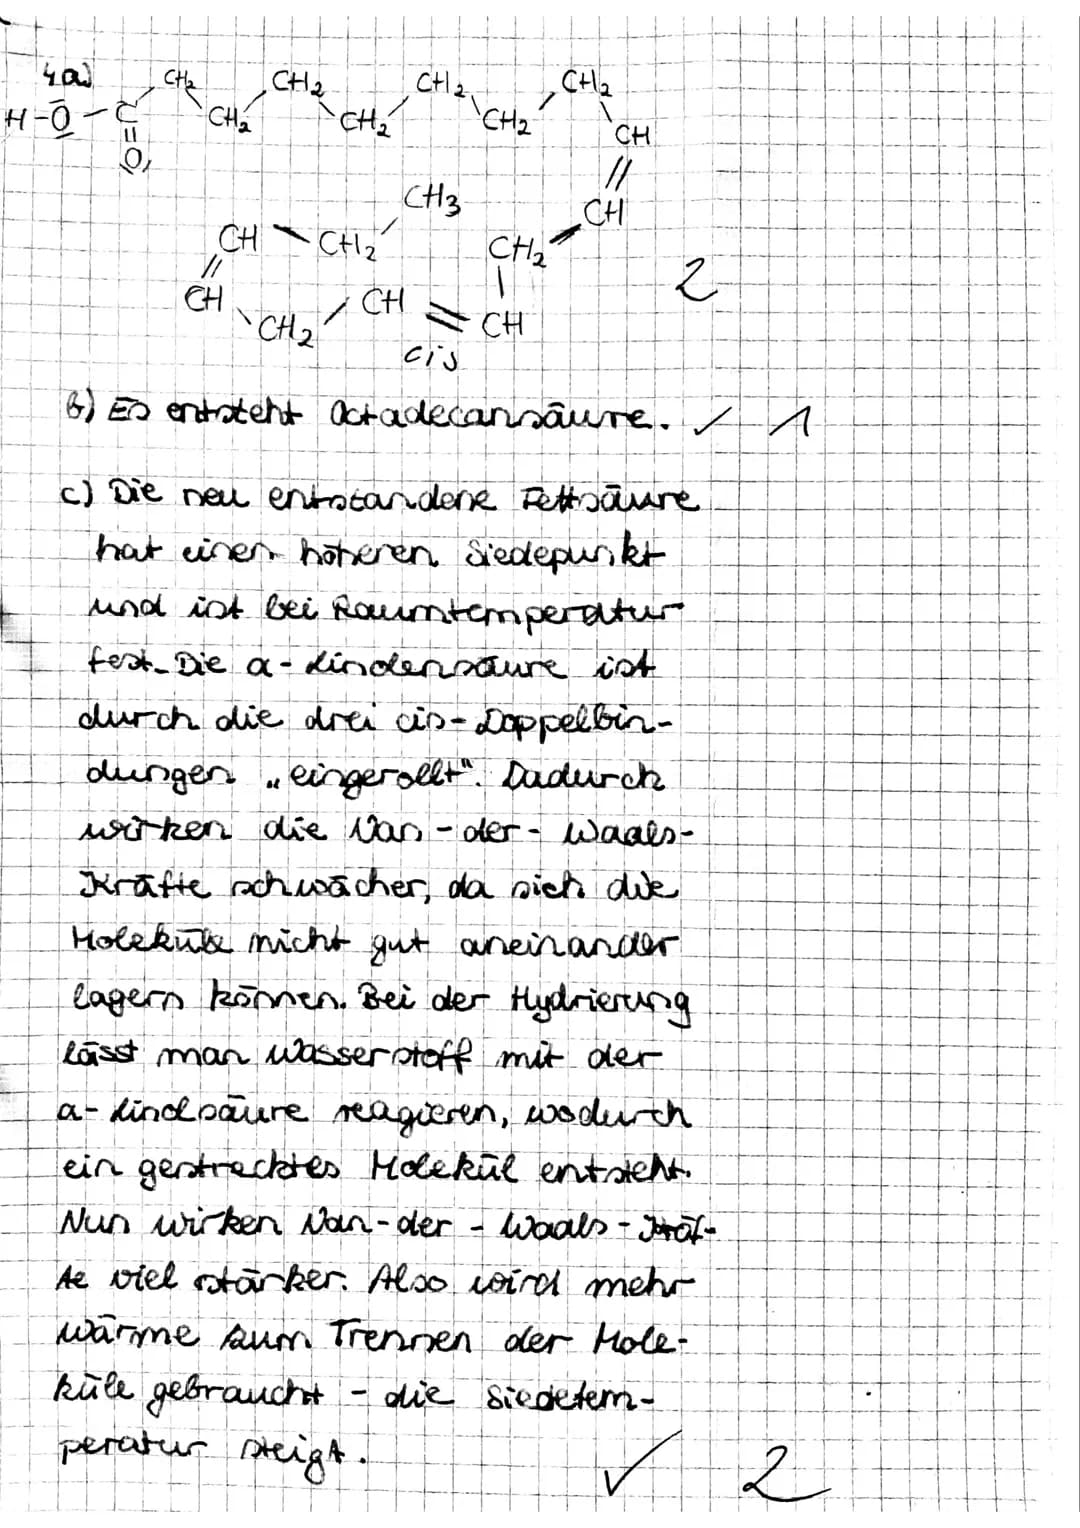 4a)
CH2 CH2 CH2 CH2
H-O-C CH2 CH2 CH2 CH
O
CH3 CH
CH CH2 CH2
2
CH CH CH
CH2
cis
b) Es entsteht Octadecansäure. ✓ 1
c) Die neu entstandene Fettsäure
hat einen höheren Siedepunkt
und ist bei Raumtemperatur
fest. Die α-Lindensäure ist
durch die drei cis-Doppelbin-
dungen „eingerollt". Dadurch
wirken die Van-der-Waals-
Kräfte schwächer, da sich die
Moleküle nicht gut aneinander
lagern können. Bei der Hydrierung
lässt man Wasserstoff mit der
α-Lindsäure reagieren, wodurch
ein gestrecktes Molekül entsteht.
Nun wirken Van-der-Waals-Kräf-
te viel stärker. Also wird mehr
Wärme zum Trennen der Mole-
küle gebraucht - die Siedetem-
peratur steigt.
✓ 2